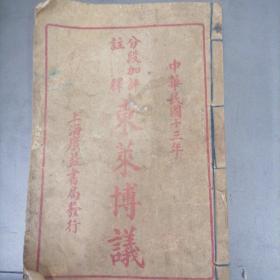 中華民國十三年
分段加評
註釋
東萊博議
上海廣益書局發行